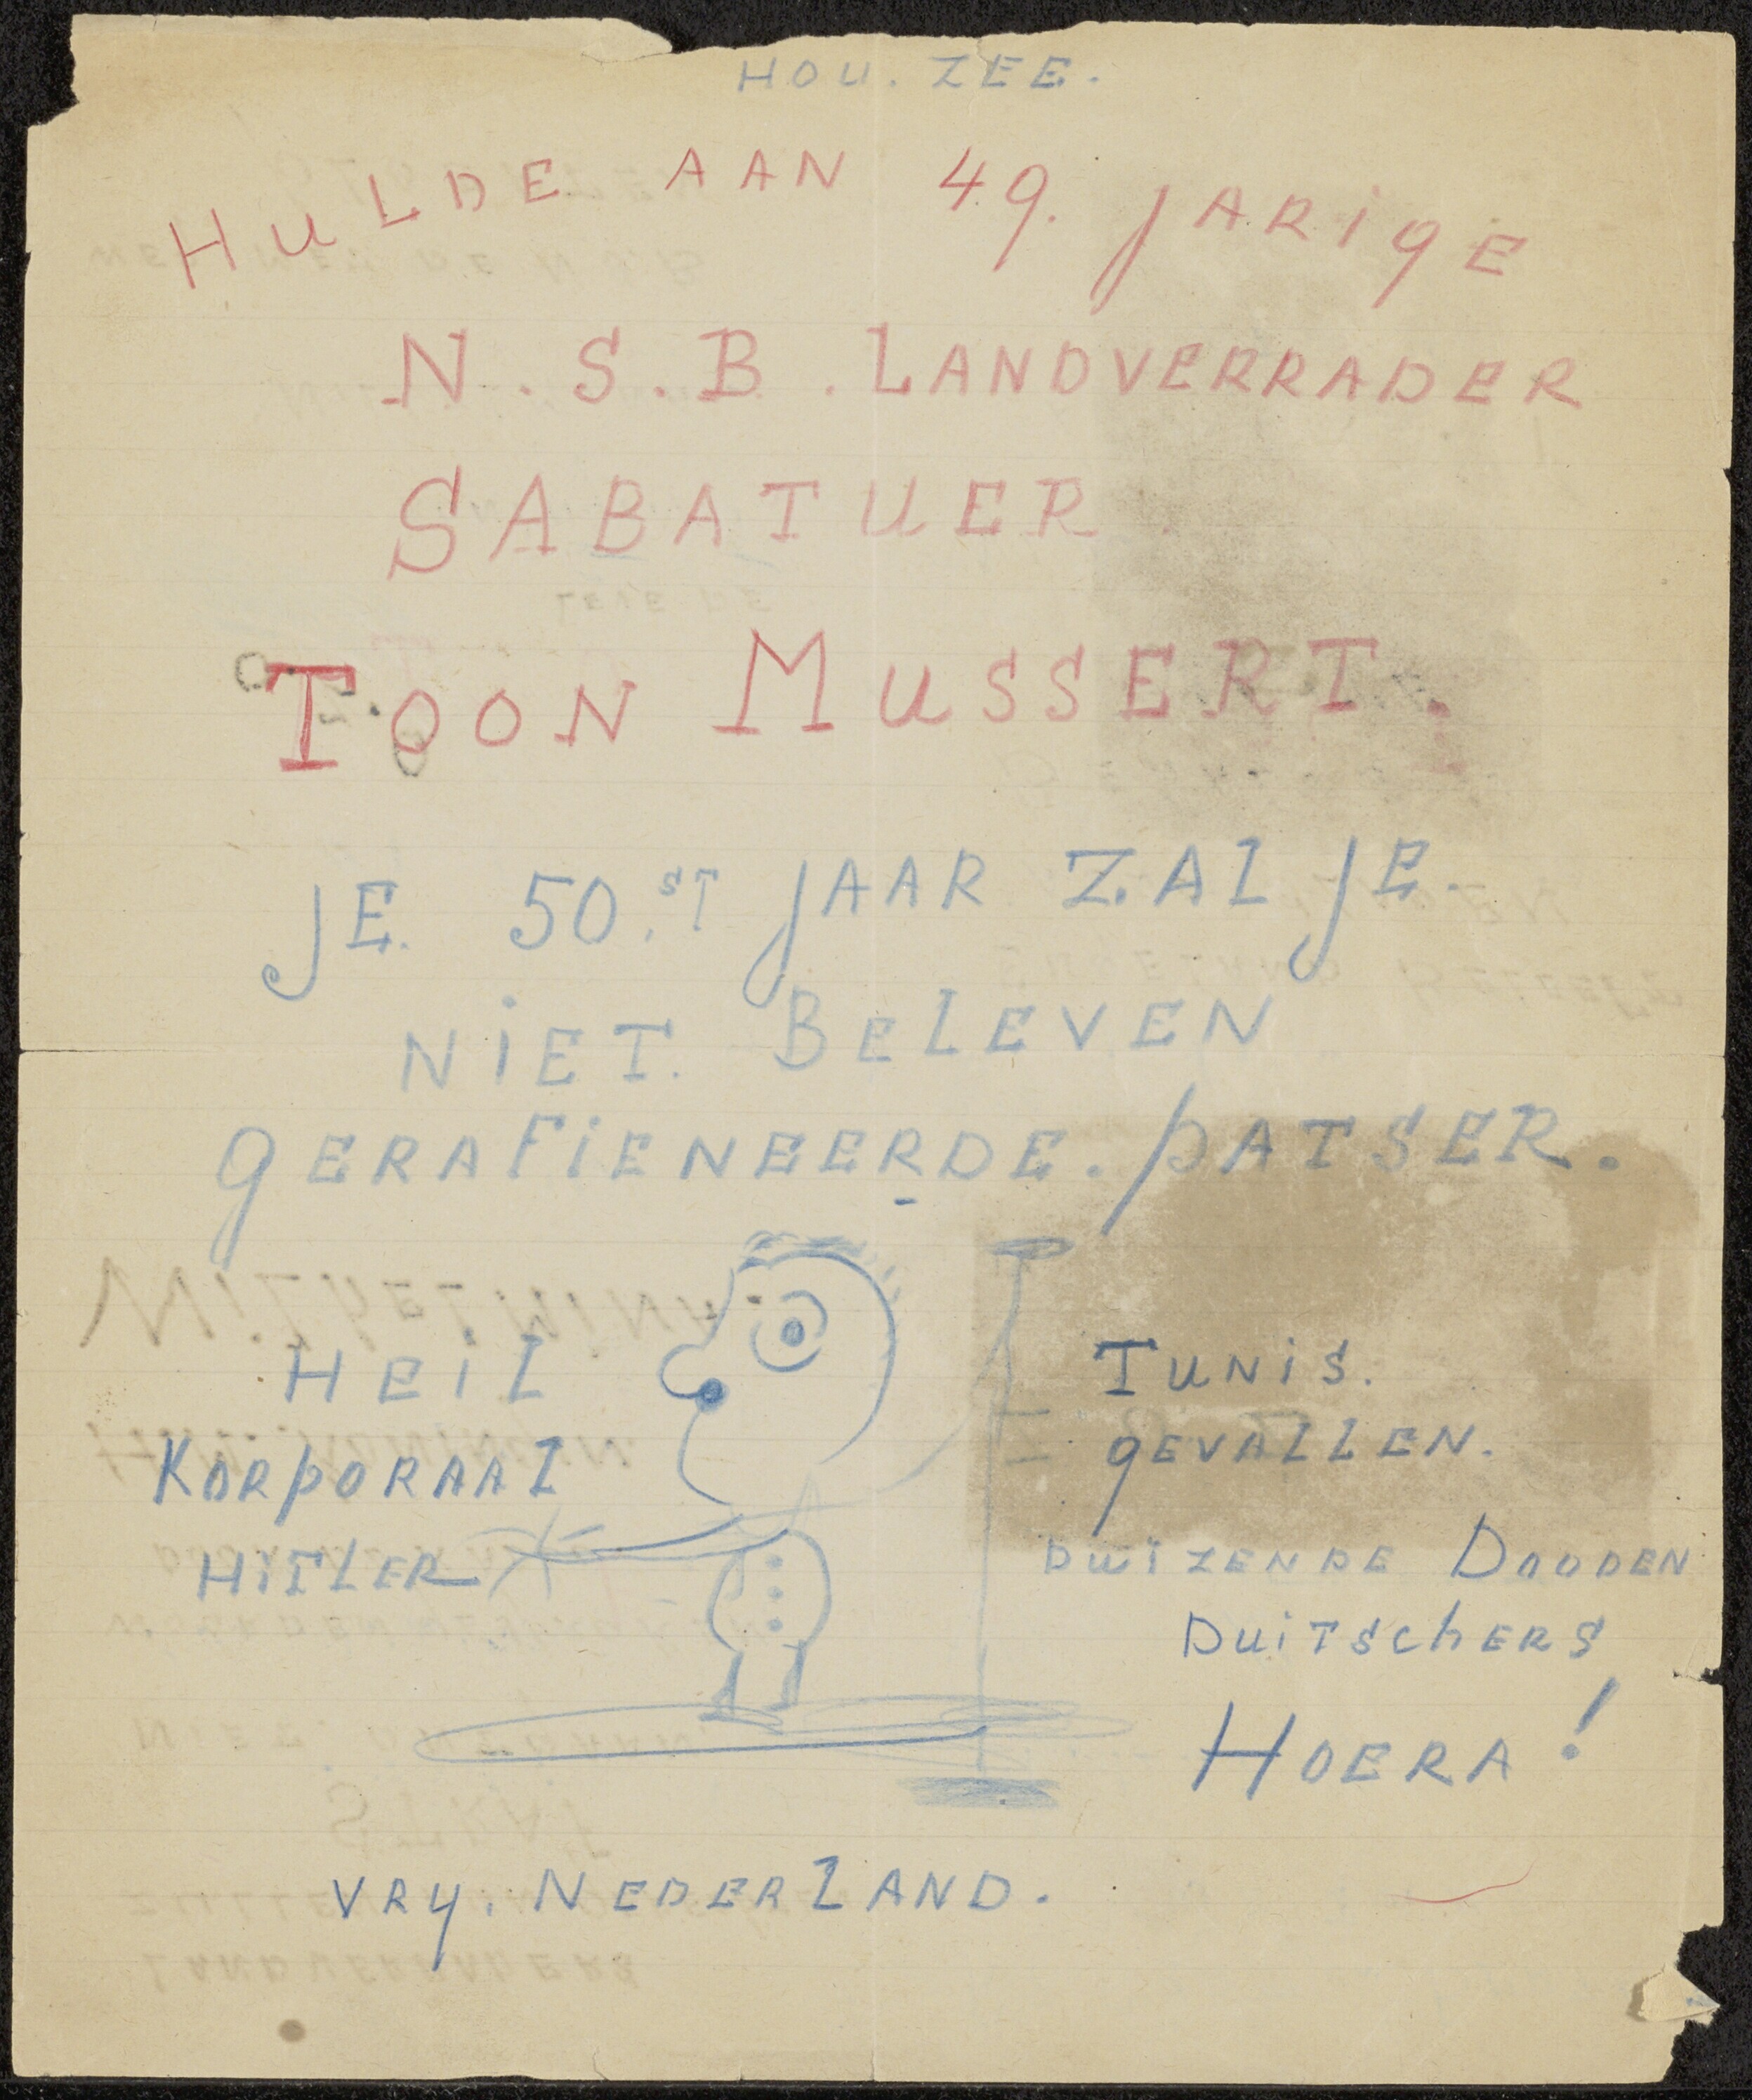 HOU. ZEE.
HULDE AAN 49. JARiGE
N.S.B. LANDVERRADER
SABATUER
TOON MUSSERT.
JE. 50.ST JAAR ZAL JE.
NiET. BELEVEN
GERAFiENEERDE. PATSER.
HEiL
KORPORAAL
HiTLER
TUNiS.
GEVALLEN.
DUiZENDE DOODEN
DUiTSCHERS
HOERA!
VRY. NEDERLAND.